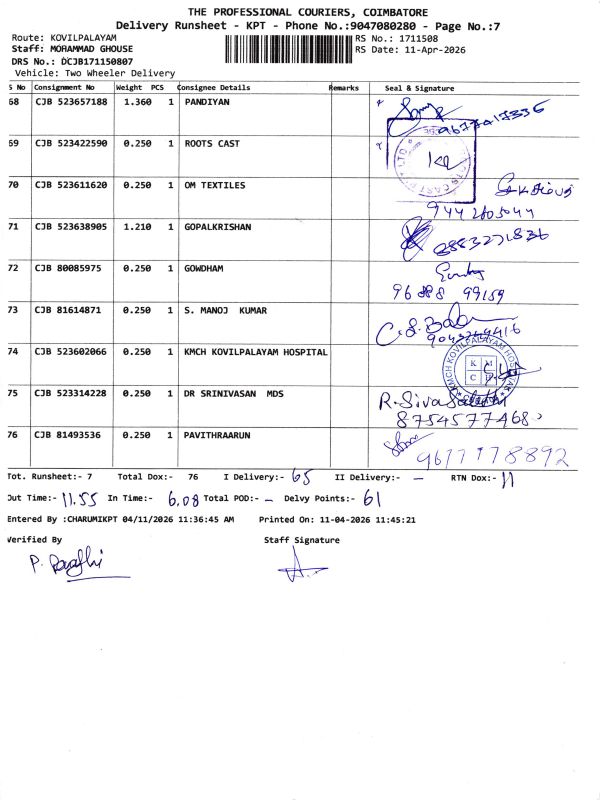 THE PROFESSIONAL COURIERS, COIMBATORE
Delivery Runsheet - KPT - Phone No.:9047080280 - Page No.:7
Route: KOVILPALAYAM RS No.: 1711508
Staff: MOHAMMAD GHOUSE RS Date: 11-Apr-2026
DRS No.: DCJB171150807
Vehicle: Two Wheeler Delivery
S No Consignment No Weight PCS Consignee Details Remarks Seal & Signature
68 CJB 523657188 1.360 1 PANDIYAN 9677417336
69 CJB 523422590 0.250 1 ROOTS CAST
70 CJB 523611620 0.250 1 OM TEXTILES
9442605044
71 CJB 523638905 1.210 1 GOPALKRISHAN 8883271836
72 CJB 80085975 0.250 1 GOWDHAM
96888 99159
73 CJB 81614871 0.250 1 S. MANOJ KUMAR
74 CJB 523602066 0.250 1 KMCH KOVILPALAYAM HOSPITAL KMCH KOVILPALAYAM HOSPITAL
K M C H
75 CJB 523314228 0.250 1 DR SRINIVASAN MDS
8754577468
76 CJB 81493536 0.250 1 PAVITHRAARUN
9677778892
Tot. Runsheet:- 7 Total Dox:- 76 I Delivery:- 65 II Delivery:- - RTN Dox:- 11
Out Time:- 11.55 In Time:- 6.08 Total POD:- - Delvy Points:- 61
Entered By :CHARUMIKPT 04/11/2026 11:36:45 AM Printed On: 11-04-2026 11:45:21
Verified By Staff Signature